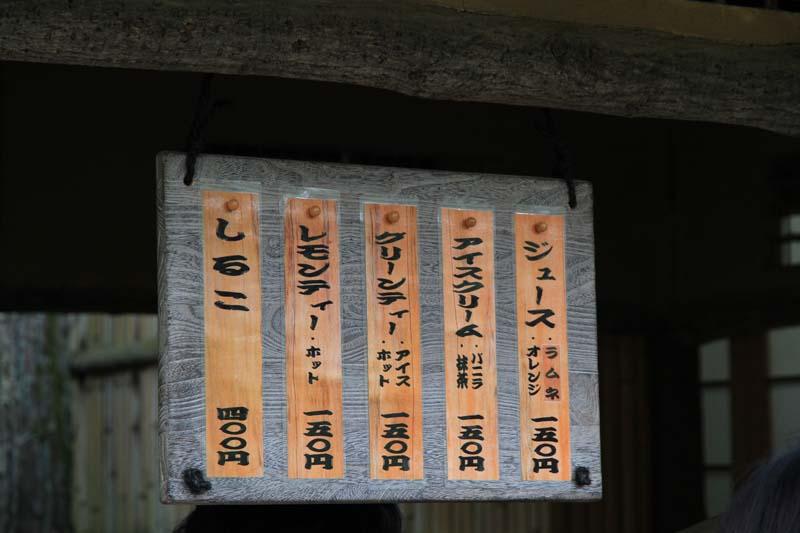 ジュース・ラムネ
・オレンジ
一五〇円
アイスクリーム・バニラ
・抹茶
一五〇円
グリーンティー・アイス
・ホット
一五〇円
レモンティー・ホット
一五〇円
しるこ
四〇〇円